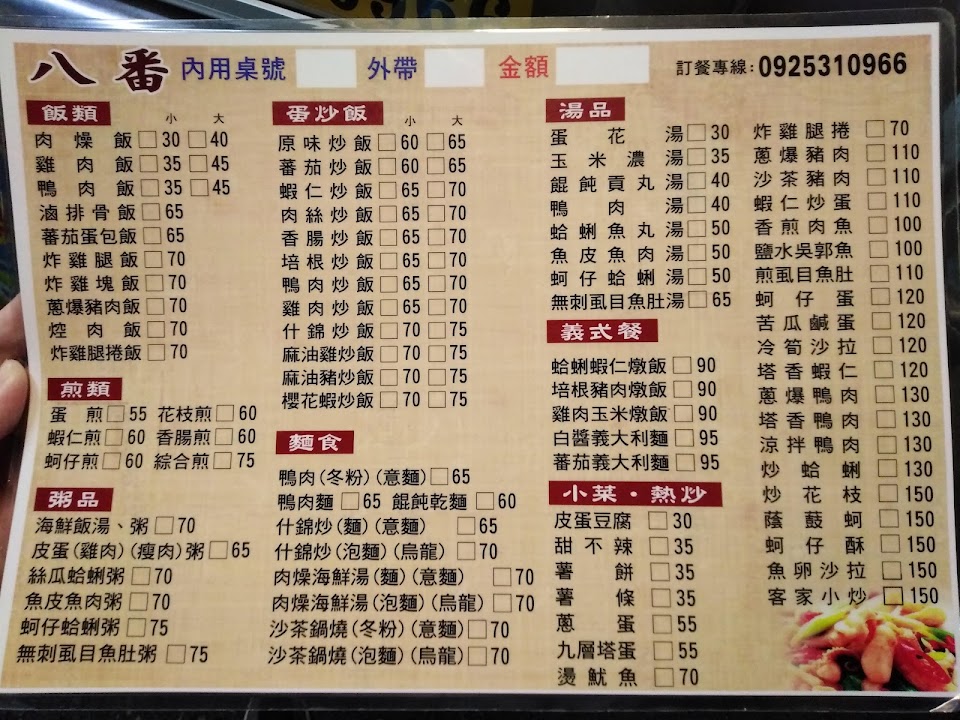 八番 內用桌號 外帶 金額 訂餐專線:0925310966
飯類 小 大
肉燥飯□30□40
雞肉飯□35□45
鴨肉飯□35□45
滷排骨飯□65
蕃茄蛋包飯□65
炸雞腿飯□70
炸雞塊飯□70
蔥爆豬肉飯□70
焢肉飯□70
炸雞腿捲飯□70
煎類
蛋煎□55 花枝煎□60
蝦仁煎□60 香腸煎□60
蚵仔煎□60 綜合煎□75
粥品
海鮮飯湯、粥□70
皮蛋(雞肉)(瘦肉)粥□65
絲瓜蛤蜊粥□70
魚皮魚肉粥□70
蚵仔蛤蜊粥□75
無刺虱目魚肚粥□75
蛋炒飯 小 大
原味炒飯□60□65
蕃茄炒飯□60□65
蝦仁炒飯□65□70
肉絲炒飯□65□70
香腸炒飯□65□70
培根炒飯□65□70
鴨肉炒飯□65□70
雞肉炒飯□65□70
什錦炒飯□70□75
麻油雞炒飯□70□75
麻油豬炒飯□70□75
櫻花蝦炒飯□70□75
麵食
鴨肉(冬粉)(意麵)□65
鴨肉麵□65 餛飩乾麵□60
什錦炒(麵)(意麵)□65
什錦炒(泡麵)(烏龍)□70
肉燥海鮮湯(麵)(意麵)□70
肉燥海鮮湯(泡麵)(烏龍)□70
沙茶鍋燒(冬粉)(意麵)□70
沙茶鍋燒(泡麵)(烏龍)□70
湯品
蛋花湯□30
玉米濃湯□35
餛飩貢丸湯□40
鴨肉湯□40
蛤蜊魚丸湯□50
魚皮魚肉湯□50
蚵仔蛤蜊湯□50
無刺虱目魚肚湯□65
義式餐
蛤蜊蝦仁燉飯□90
培根豬肉燉飯□90
雞肉玉米燉飯□90
白醬義大利麵□95
蕃茄義大利麵□95
小菜・熱炒
皮蛋豆腐□30
甜不辣□35
薯餅□35
薯條□35
蔥蛋□55
九層塔蛋□55
燙魷魚□70
炸雞腿捲□70
蔥爆豬肉□110
沙茶豬肉□110
蝦仁炒蛋□110
香煎肉魚□100
鹽水吳郭魚□100
煎虱目魚肚□110
蚵仔蛋□120
苦瓜鹹蛋□120
冷筍沙拉□120
塔香蝦仁□120
蔥爆鴨肉□130
塔香鴨肉□130
涼拌鴨肉□130
炒蛤蜊□130
炒花枝□150
蔭鼓蚵□150
蚵仔酥□150
魚卵沙拉□150
客家小炒□150